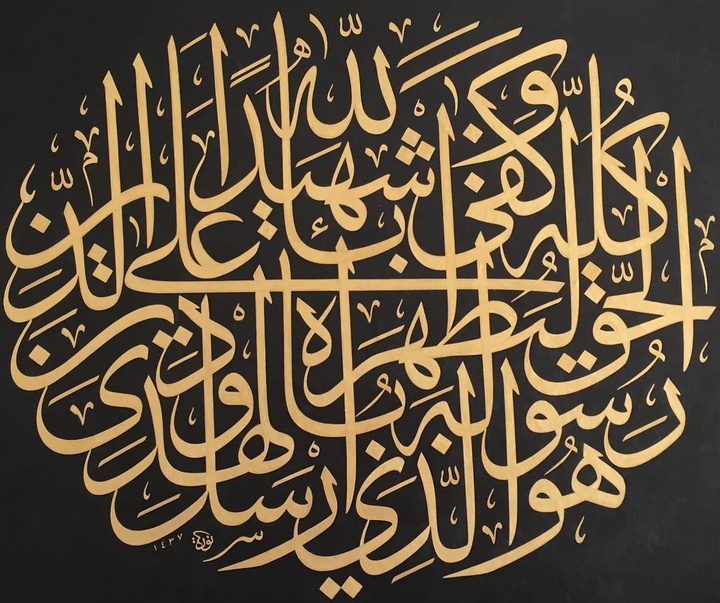 هو الذي ارسل
رسوله بالهدى ودين
الحق ليظهره على الدين
كله وكفى بالله شهيدا
١٤٣٧